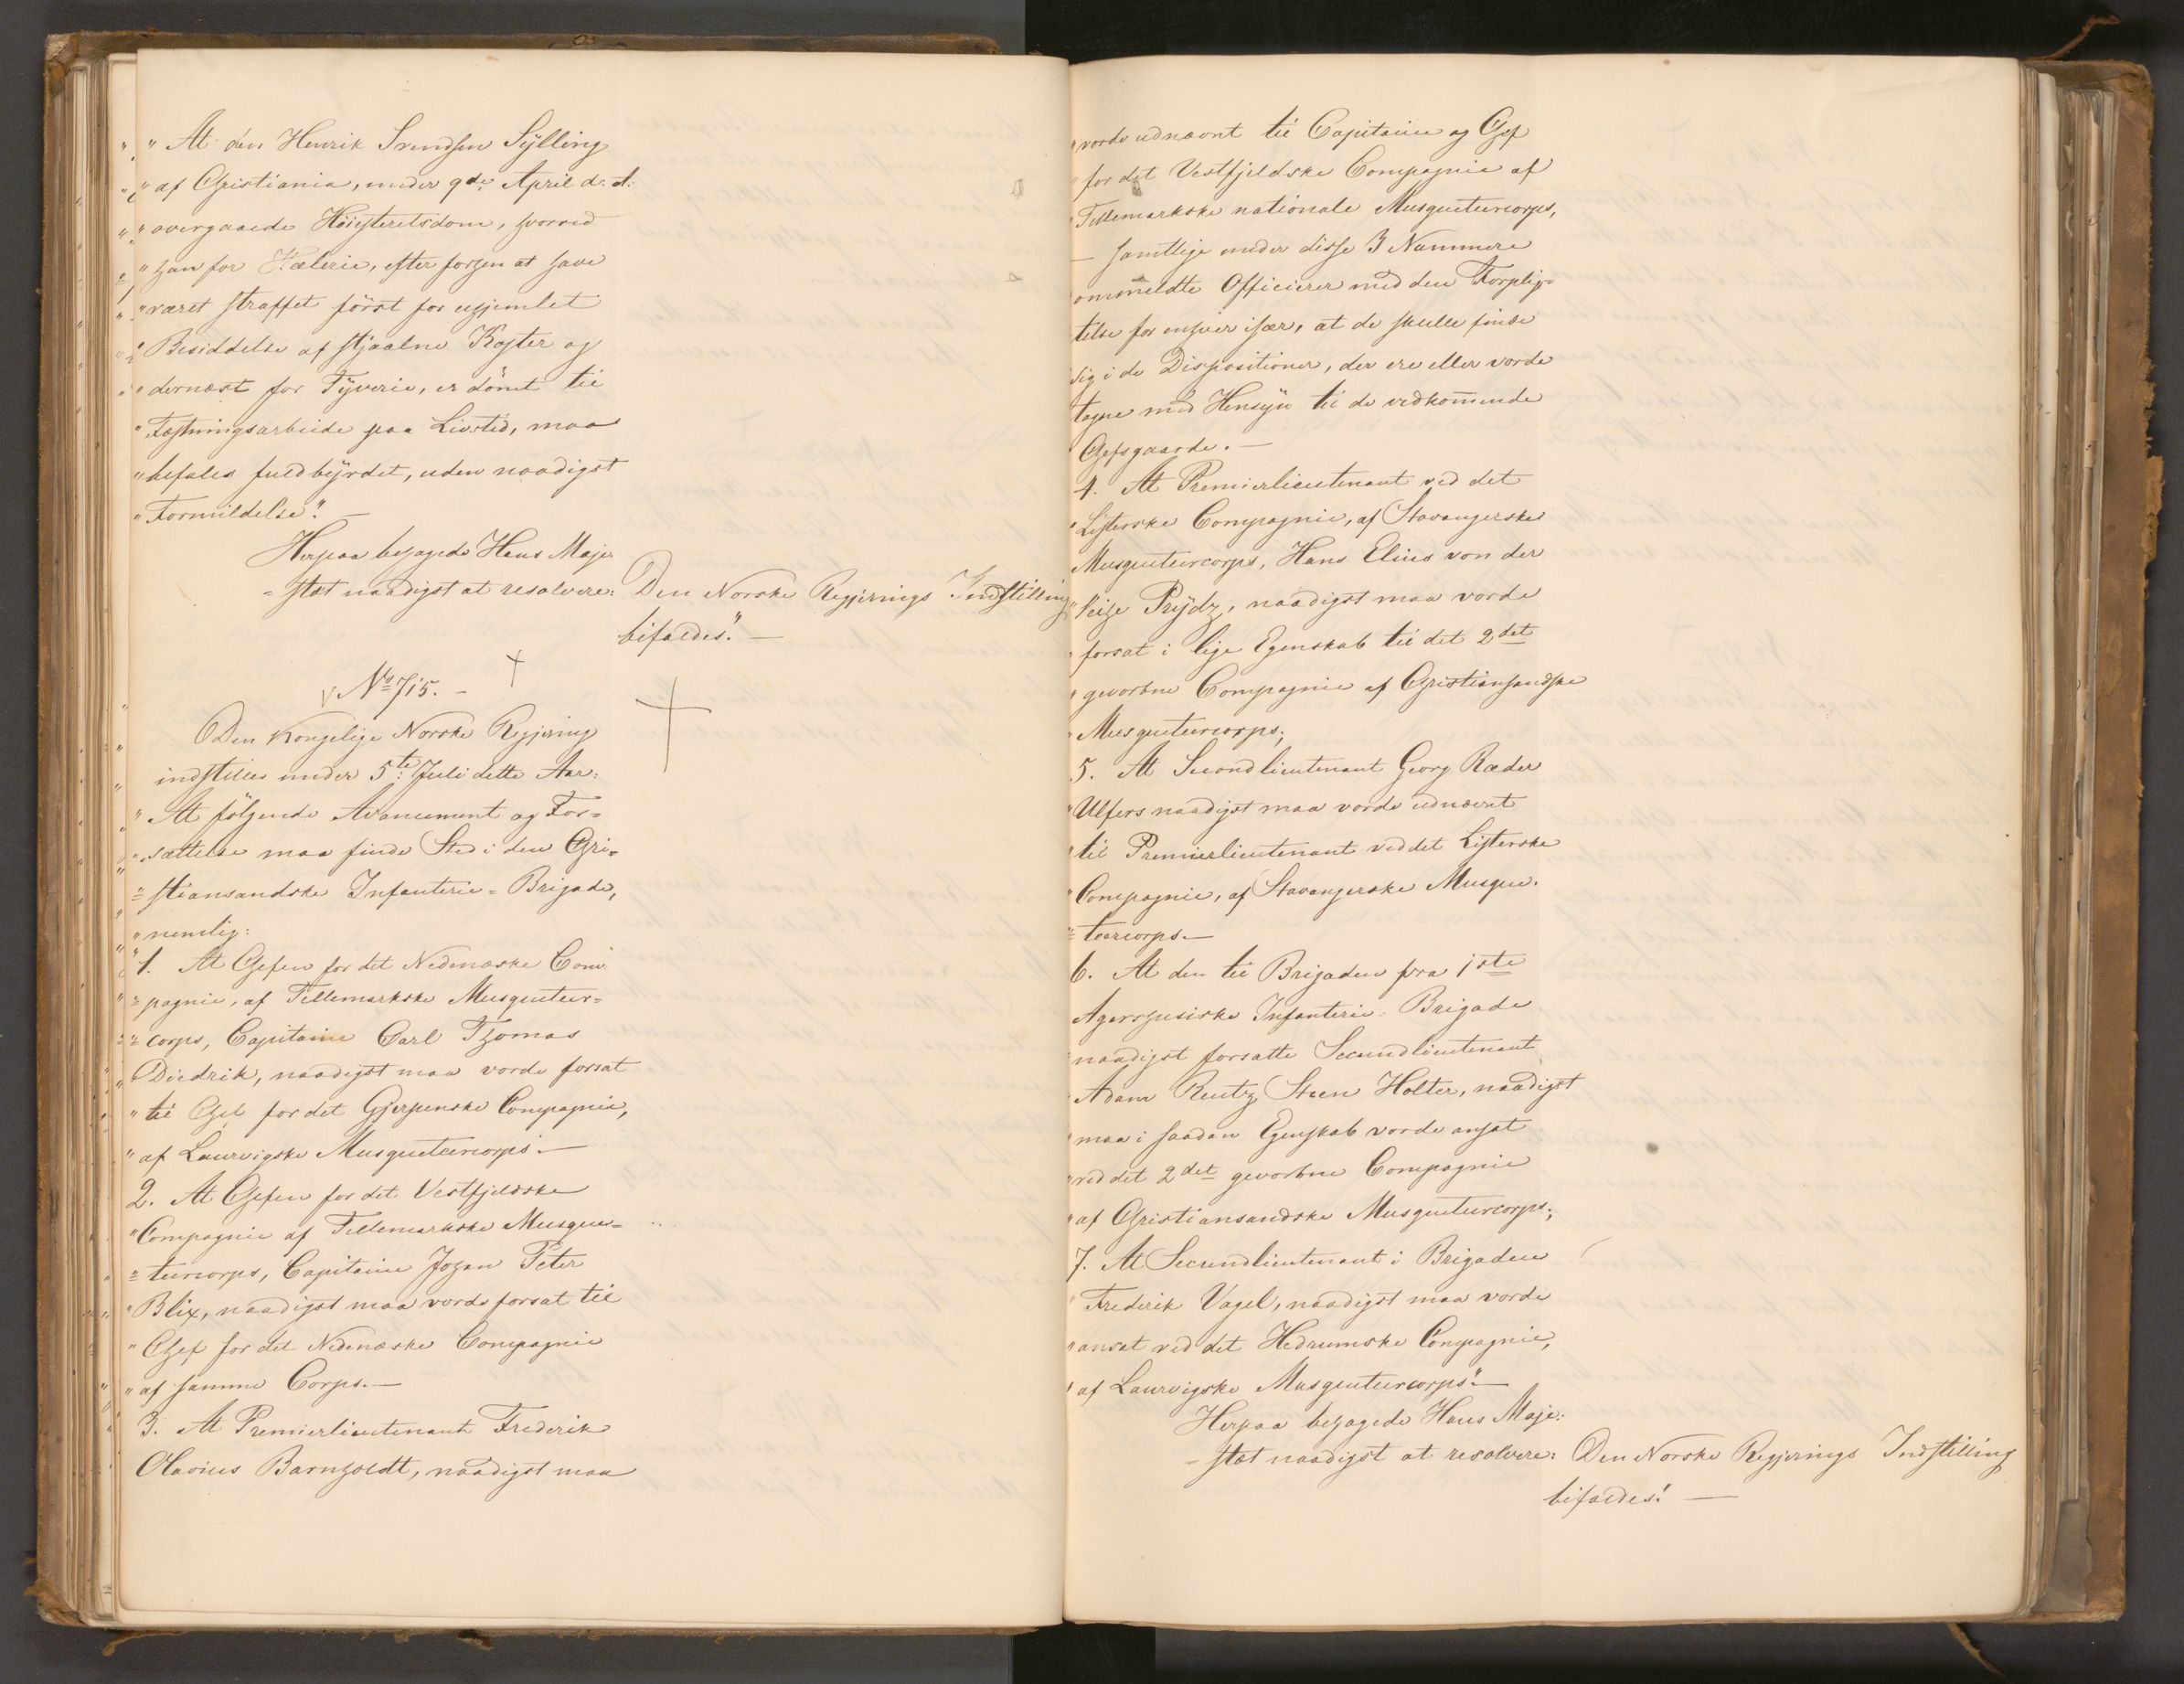 "At den Henrik Svendsen Sylling
"af Christiania, under 9de April d: A:
"overgaaede Höiesteretsdom, hvorved
"han for Hælerie, efter forhen at have
"været straffet först for uhjemlet
"Besiddelse af stjaalne Koster og
"dernæst for Tyverie, er dömt til
"Fæstningsarbeide paa Livstid, maa
"befales fuldbyrdet, uden naadigst
"Formildelse". —
Herpaa behagede Hans Maje-
-stæt naadigst at resolvere: Den Norske Regjerings Indstilling
bifaldes". —
No 715. —
Den Kongelige Norske Regjering
indstiller under 5te Juli dette Aar:
"At fölgende Avancement og For-
"sættelse maa finde Sted i den Chri-
"=stiansandske Infanterie=Brigade,
"nemlig:
"1. At Chefen for det Nedenæske Com-
"=pagnie, af Tellemarkske Musqueteer-
"=corps, Capitaine Carl Thomas
"Diedrik, naadigst maa vorde forsat
"til Chef for det Gjerpenske Compagnie,
"af Laurvigske Musqueteercorps. —
2. At Chefen for det Vestfjeldske
"Compagnie af Tellemarkske Musque=
"=teercorps, Capitaine Johan Peter
"Blix, naadigst maa vorde forsat til
"Chef for det Nedenæske Compagnie
"af samme Corps. —
3. At Premierlieutenant Frederik
Olavius Barnholdt, naadigst maa
"vorde udnævnt til Capitaine og Chef
"for det Vestfjeldske Compagnie af
"Tellemarkske nationale Musqueteercorps,
— samtlige under disse 3 Nummere
"ommeldte Officierer med den Forplig=
telse for enhver især, at de skulle finde
sig i de Dispositioner, der ere eller vorde
tagne med Hensyn til de vedkommende
Chefsgaarde. —
4. At Premierlieutenant ved det
"Listerske Compagnie, af Stavangerske
Musqueteercorps, Hans Elias von der
"Prydz, naadigst maa vorde
"forsat i lige Egenskab til det 2det
"gevorbne Compagnie af Christiansandske
"Musqueteercorps;
5. At Secondlieutenant Georg Ræder
"Ulfers naadigst maa vorde udnævnt
"til Premierlieutenant ved det Listerske
"Compagnie, af Stavangerske Musque-
"=teercorps. —
6. At den til Brigaden fra 1ste
Agershusiske Infanterie-Brigade
"naadigst forsatte Secundlieutenant
"Adam Rentz Steen Holter, naadigst
"maa i saadan Egenskab vorde ansat
"ved det 2det gevorbne Compagnie
"af Christiansandske Musqueteercorps;
7. At Secundlieutenant i Brigaden
"Frederik Vagel, naadigst maa vorde
"ansat ved det Hedrumske Compagnie,
"af Laurvigske Musqueteercorps" —
Herpaa behagede Hans Maje-
-stæt naadigst at resolvere: Den Norske Regjerings Indstilling
bifaldes". —